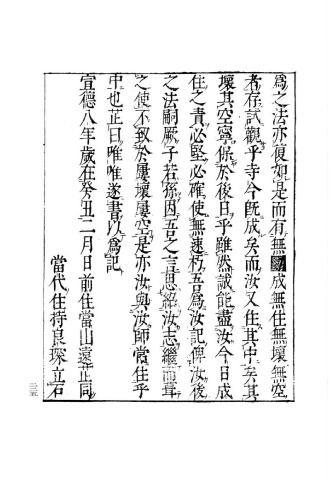 為之法亦復如是而有無成無住無壞無空
者存試觀乎寺今既成矣而汝又住其中矣其
壞其空寧保於後日乎雖然誠能盡汝今日成
住之責必堅必確使無速朽吾為汝記俾汝後
之法嗣厥子若孫因吾之言思絡汝志繼而葺
之使不致於屢壞屢空是亦汝與汝師當住乎
中也芷曰唯唯遂書以為記
宣德八年歲在癸丑二月日前住當山遠芷同
當代住持良琛立石
三五